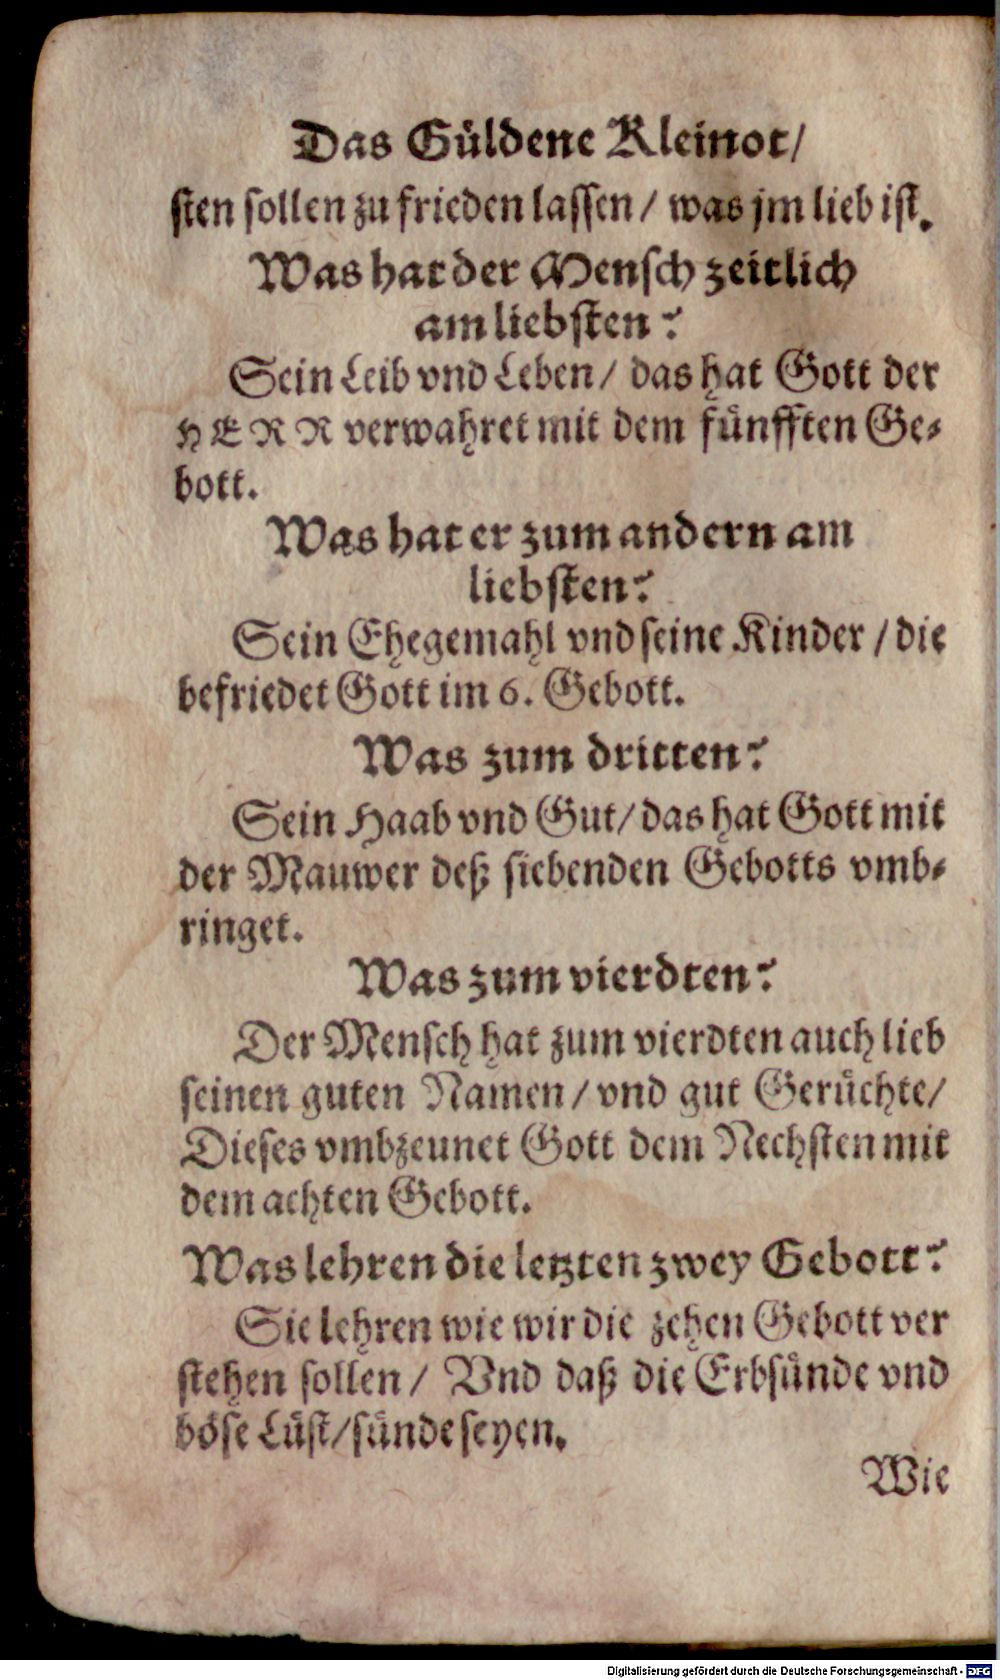 Das Güldene Kleinot/
sten sollen zu frieden lassen / was jm lieb ist.
Was hat der Mensch zeitlich
am liebsten?
Sein Leib vnd Leben / das hat Gott der
HERR verwahret mit dem fünfften Ge-
bott.
Was hat er zum andern am
liebsten?
Sein Ehegemahl vnd seine Kinder / die
befriedet Gott im 6. Gebott.
Was zum dritten?
Sein Haab vnd Gut / das hat Gott mit
der Mauwer deß siebenden Gebotts vmb-
ringet.
Was zum vierdten?
Der Mensch hat zum vierdten auch lieb
seinen guten Namen / vnd gut Gerüchte /
Dieses vmbzeunet Gott dem Nechsten mit
dem achten Gebott.
Was lehren die letzten zwey Gebott?
Sie lehren wie wir die zehen Gebott ver
stehen sollen / Vnd daß die Erbsünde vnd
böse Lüst / sünde seyen.
Wie
Digitalisierung gefördert durch die Deutsche Forschungsgemeinschaft - DFG